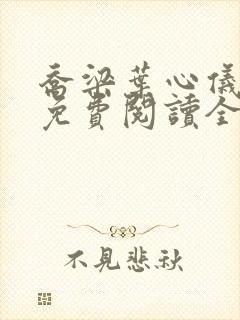 喬梁葉心儀
免費閱讀全
不見悲秋